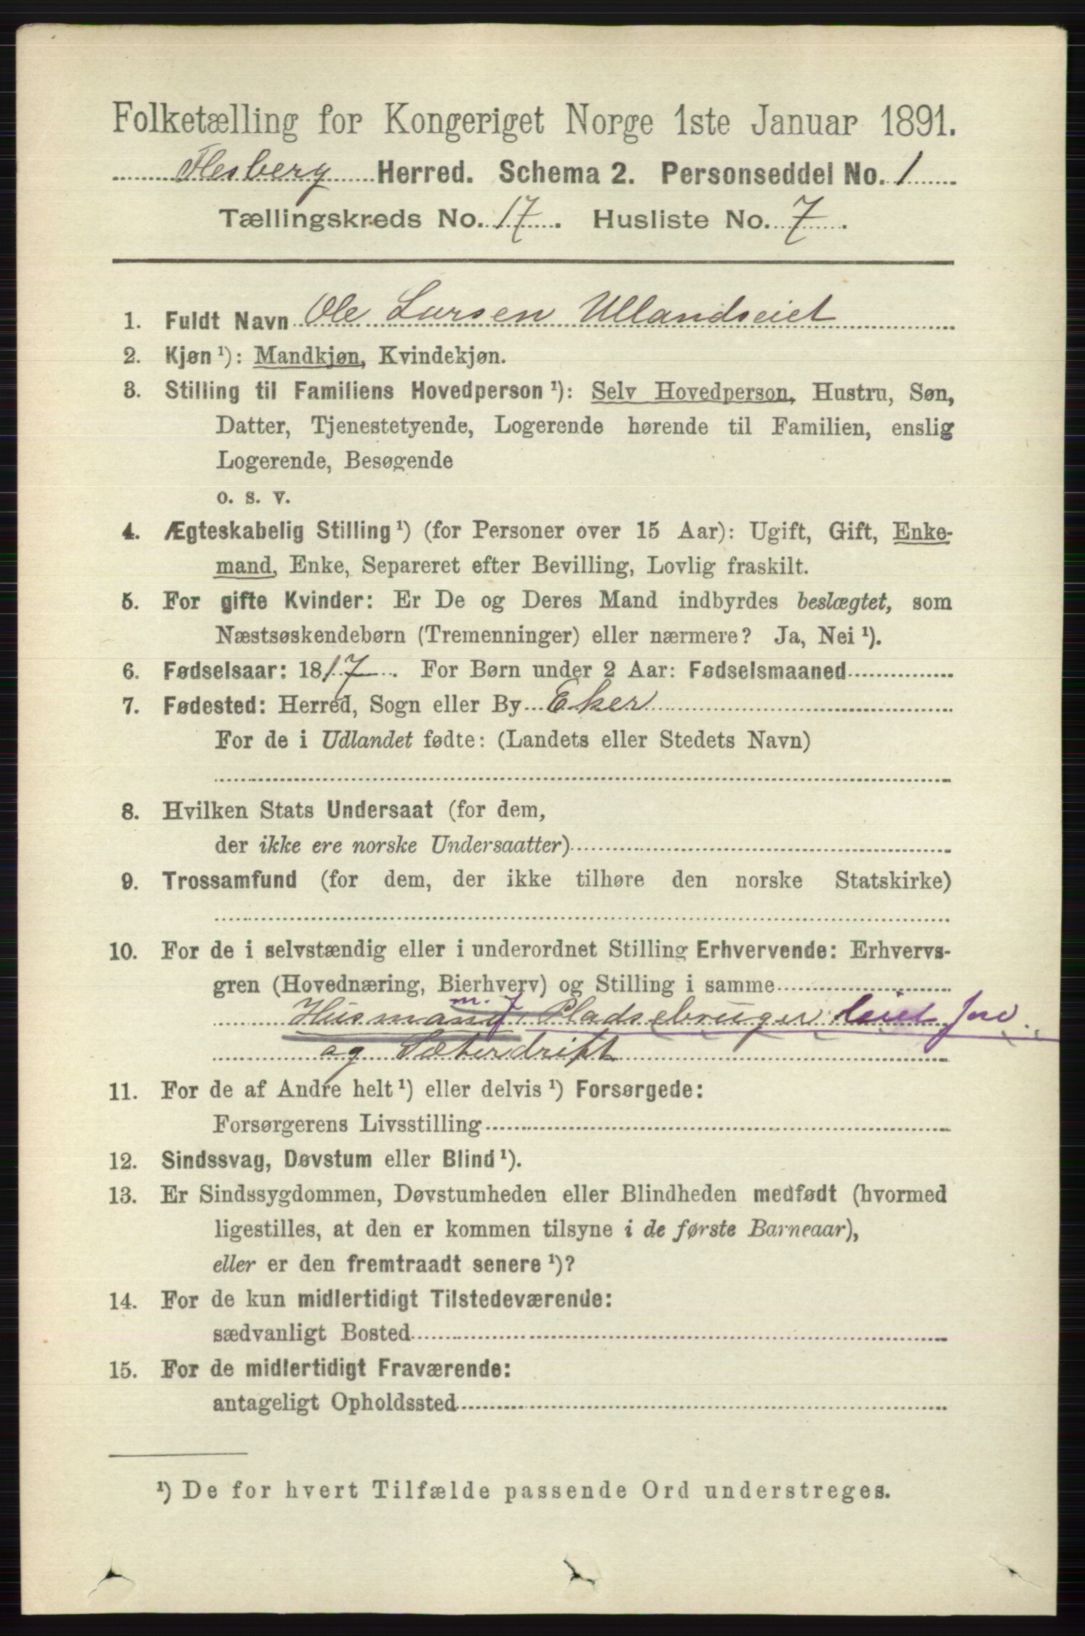 Folketælling for Kongeriget Norge 1ste Januar 1891.
Flesberg Herred. Schema 2. Personseddel No. 1
Tællingskreds No. 17. Husliste No. 7.
1. Fuldt Navn Ole Larsen Ullandseiet
2. Kjøn ¹): Mandkjøn, Kvindekjøn.
3. Stilling til Familiens Hovedperson ¹): Selv Hovedperson, Hustru, Søn,
Datter, Tjenestetyende, Logerende hørende til Familien, enslig
Logerende, Besøgende
o. s. v.
4. Ægteskabelig Stilling ¹) (for Personer over 15 Aar): Ugift, Gift, Enke-
mand, Enke, Separeret efter Bevilling, Lovlig fraskilt.
5. For gifte Kvinder: Er De og Deres Mand indbyrdes beslægtet, som
Næstsøskendebørn (Tremenninger) eller nærmere? Ja, Nei ¹).
6. Fødselsaar: 1817. For Børn under 2 Aar: Fødselsmaaned
7. Fødested: Herred, Sogn eller By Eker
For de i Udlandet fødte: (Landets eller Stedets Navn)
8. Hvilken Stats Undersaat (for dem,
der ikke ere norske Undersaatter)
9. Trossamfund (for dem, der ikke tilhøre den norske Statskirke)
10. For de i selvstændig eller i underordnet Stilling Erhvervende: Erhvervs-
gren (Hovednæring, Bierhverv) og Stilling i samme
m. J
Husmand, Pladsebruger leiet Jord
og Sæterdrift
11. For de af Andre helt ¹) eller delvis ¹) Forsørgede:
Forsørgerens Livsstilling
12. Sindssvag, Døvstum eller Blind ¹).
13. Er Sindssygdommen, Døvstumheden eller Blindheden medfødt (hvormed
ligestilles, at den er kommen tilsyne i de første Barneaar),
eller er den fremtraadt senere ¹)?
14. For de kun midlertidigt Tilstedeværende:
sædvanligt Bosted
15. For de midlertidigt Fraværende:
antageligt Opholdssted
¹) De for hvert Tilfælde passende Ord understreges.